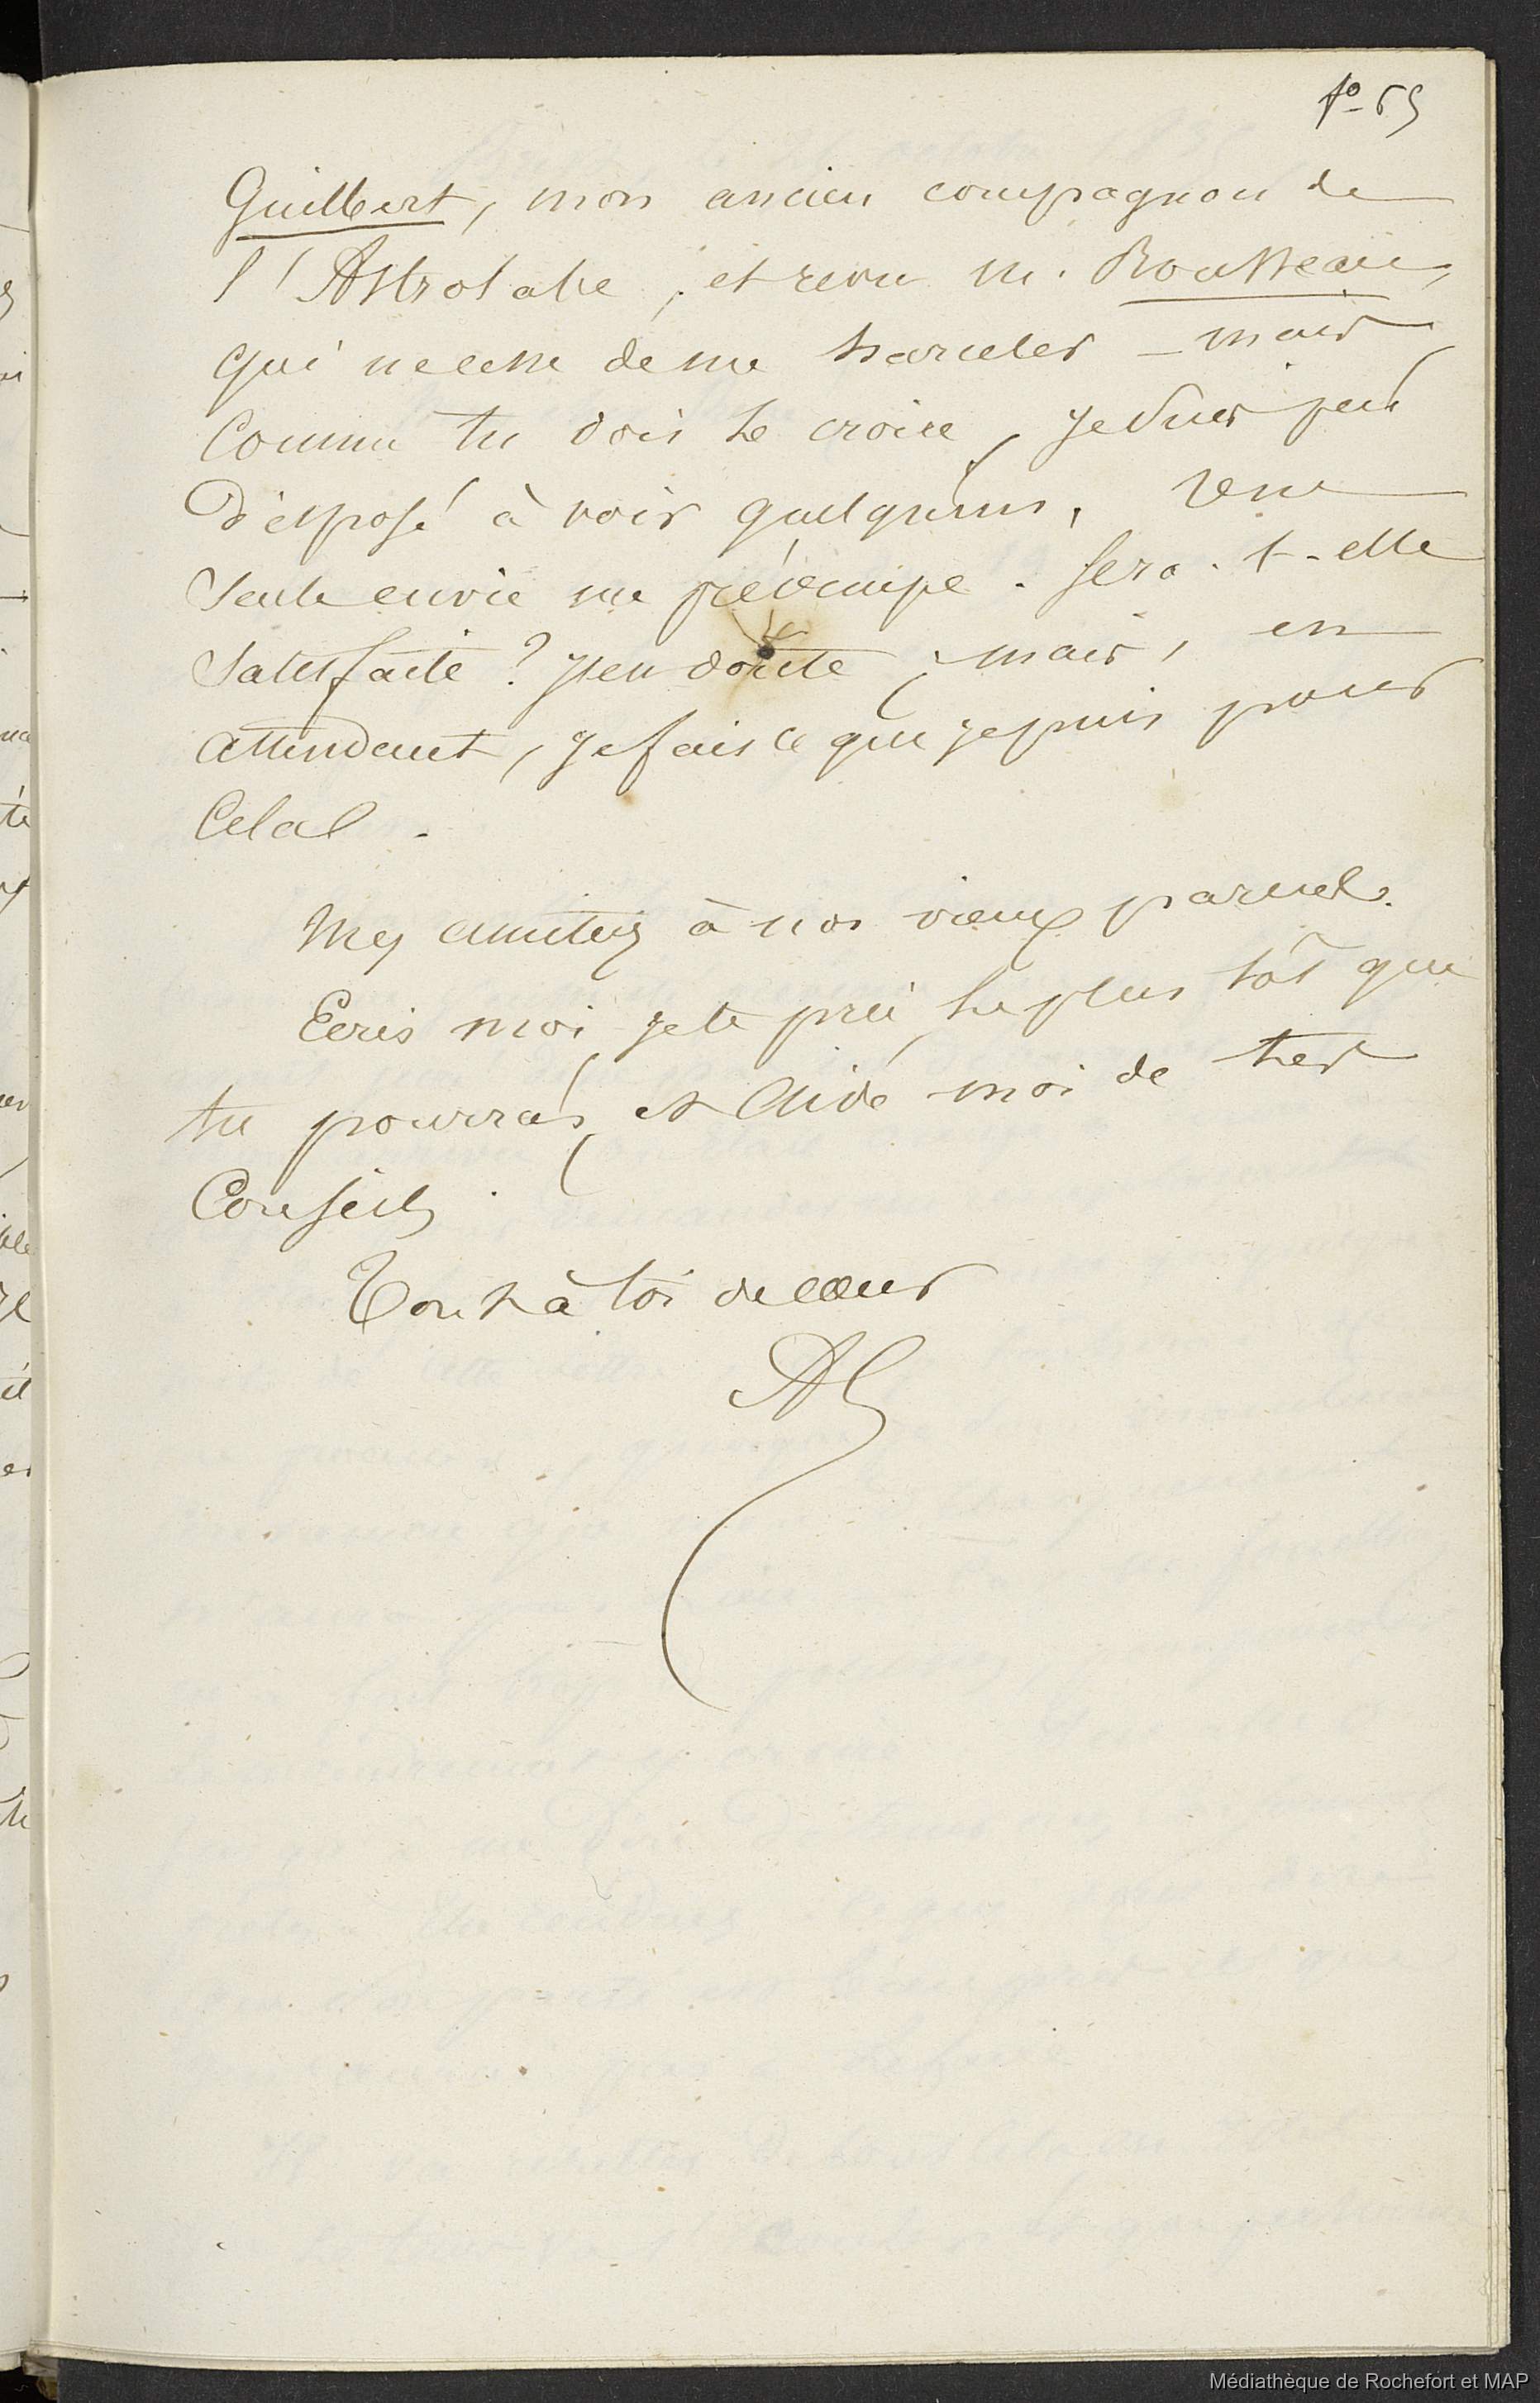 fo 65
Guilbert, mon ancien compagnon de
l'Astrolabe, et revu M. Rousseau,
qui ne cesse de me harceler – mais
comme tu dois le croire, je suis peu
disposé à voir quelqu'un, une
seule envie me préoccupe. Sera-t-elle
satisfaite ? j'en doute, mais, en
attendant, je fais ce que je puis pour
cela.
Mes amitiés à nos vieux parens.
Ecris moi, je te prie, le plus tôt que
tu pourras, et aide moi de tes
conseils.
Tout à toi de cœur
AL
Médiathèque de Rochefort et MAP